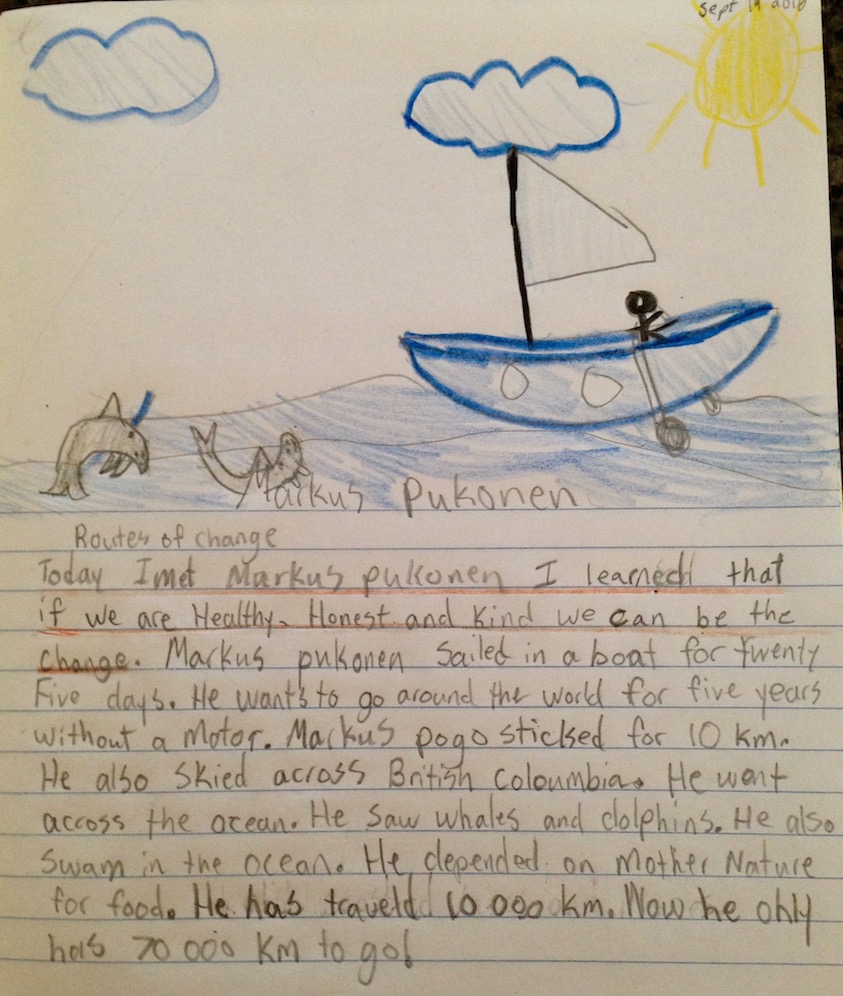 Sept 19 2016
Markus Pukonen
Routes of change
Today I met Markus pukonen I learned that
if we are Healthy. Honest and kind we can be the
change. Markus pukonen Sailed in a boat for twenty
Five days. He wants to go around the world for five years
without a Motor. Markus pogo sticked for 10 km.
He also skied across British Coloumbia. He went
across the ocean. He saw whales and dolphins. He also
Swam in the ocean. He depended on Mother Nature
for food. He has traveld 10 000 km. Now he only
has 70 000 km to go!